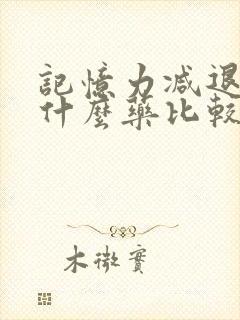 記憶力減退
什麼藥比較
木微實